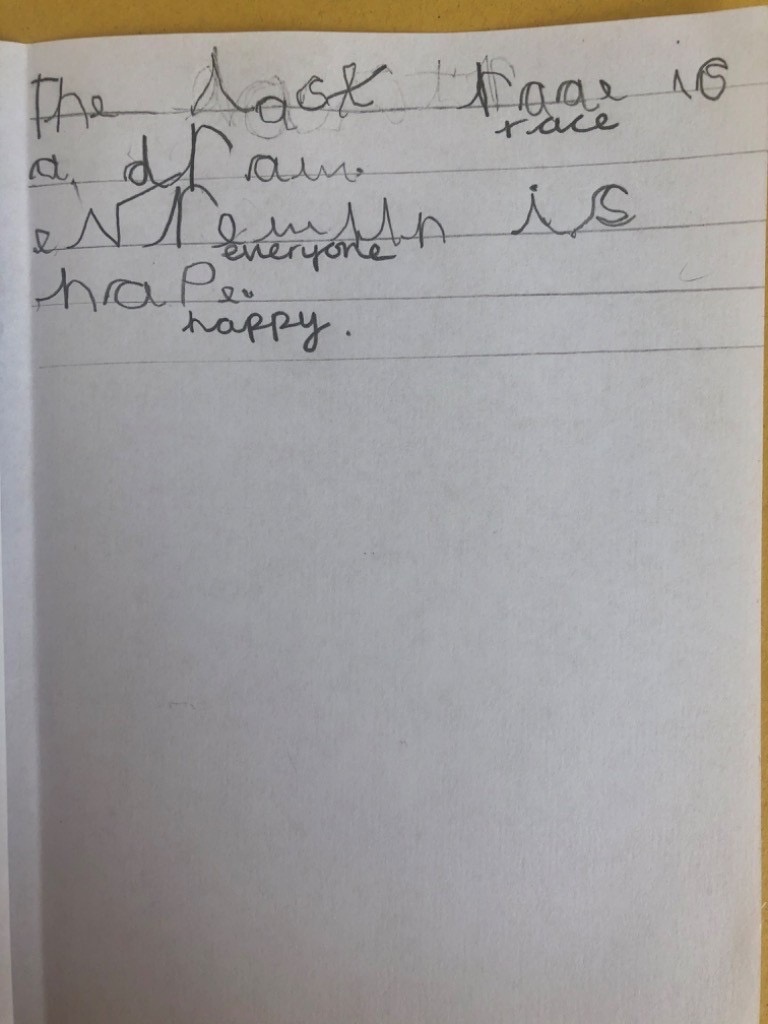 The last raae is
race
a draw.
evrewun is
everyone
hape.
happy.